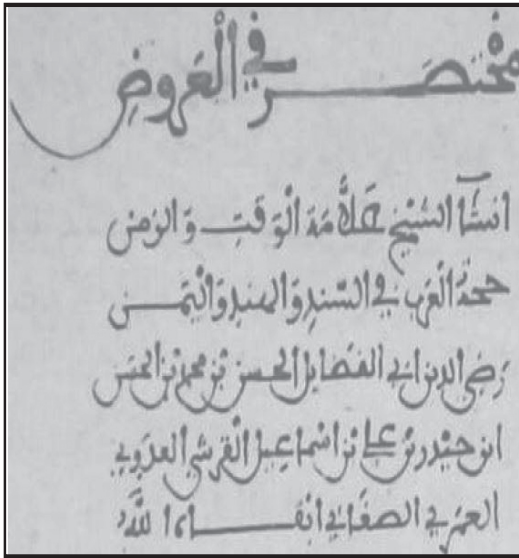 مختصر في العروض
انشأ الشيخ علامة الوقت والزمن
حجة العرب في السند والهند واليمن
رضي الدين ابي الفضايل الحسن بن محمد بن الحسن
ابن حيدر بن علي بن اسماعيل القرشي العدوي
العمري الصغاني ابقاه الله